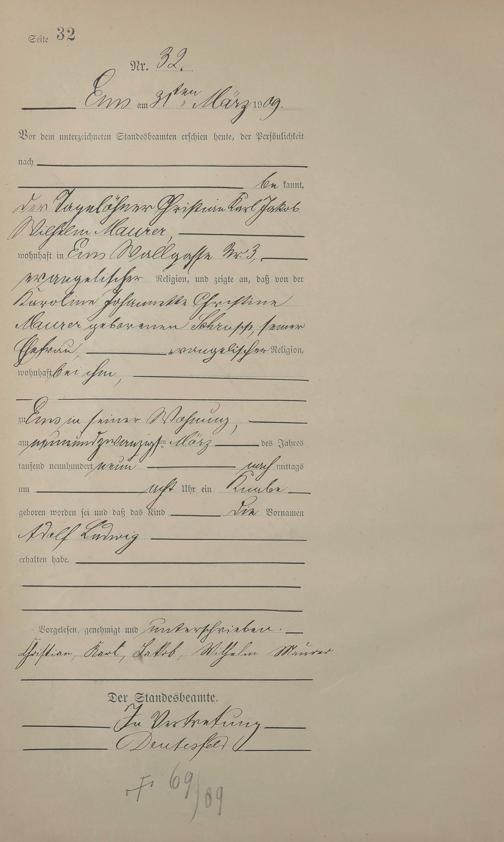 Seite 32
Nr. 32.
Ems am 31ten März 1909.
Vor dem unterzeichneten Standesbeamten erschien heute, der Persönlichkeit
nach
be kannt,
der Tagelöhner Christian Karl Jakob
Wilhelm Maurer,
wohnhaft in Ems Wallgasse Nr. 3,
evangelischer Religion, und zeigte an, daß von der
Karoline Johannette Christine
Maurer geborenen seiner
Ehefrau, evangelischer Religion,
wohnhaft bei ihm,
zu Ems in seiner Wohnung,
am neunundzwanzigsten März des Jahres
tausend neunhundert neun nach mittags
um acht Uhr ein Knabe
geboren worden sei und daß das Kind die Vornamen
Adolf Ludwig
erhalten habe.
Vorgelesen, genehmigt und unterschrieben.
Christian, Karl, Jakob, Wilhelm Maurer
Der Standesbeamte.
In Vertretung
69/89